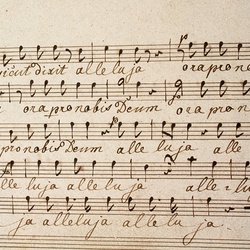 sicut dixit alleluja ora prono
ora pro nobis Deum ora pron
pro nobis Deum alle luja alle
lle luja alleluja alle lu
ja alleluja allelu ja.